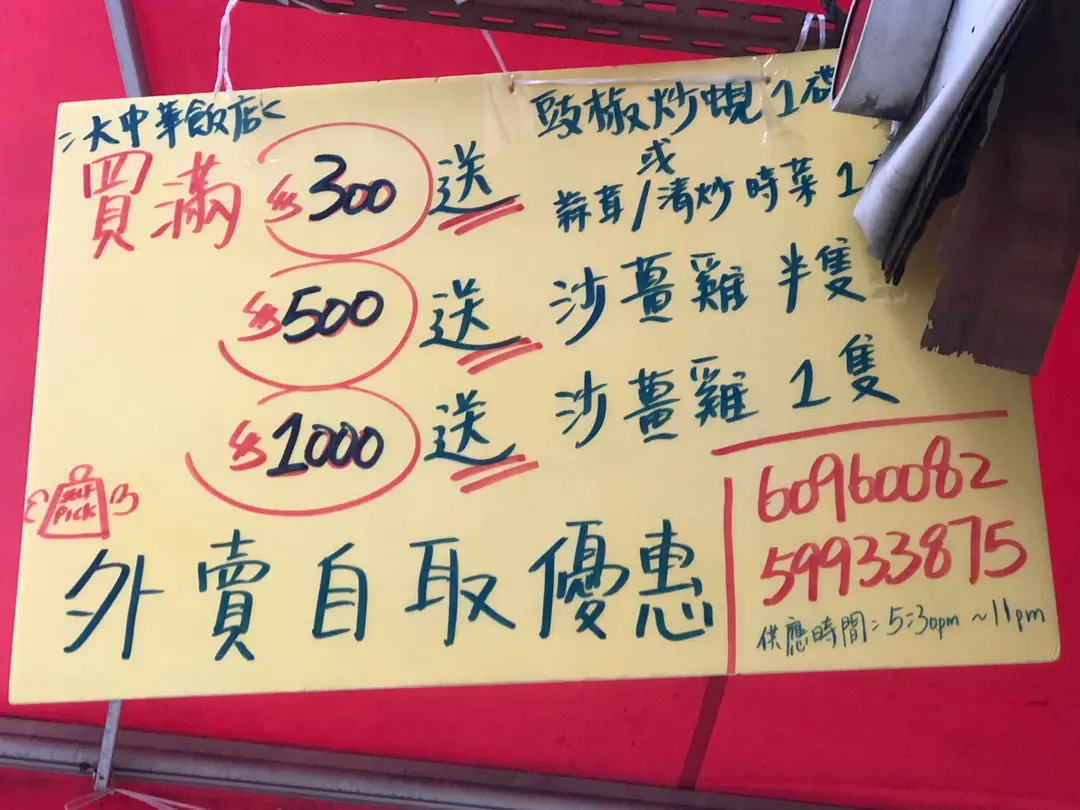 ：大中華飯店
買滿 $300 送 豉椒炒蜆 1碟
或
蒜茸/清炒時菜 1
$500 送 沙薑雞 半隻
$1000 送 沙薑雞 1隻
SELF PICK
外賣自取優惠
60960082
59933875
供應時間：5:30pm ~ 11pm